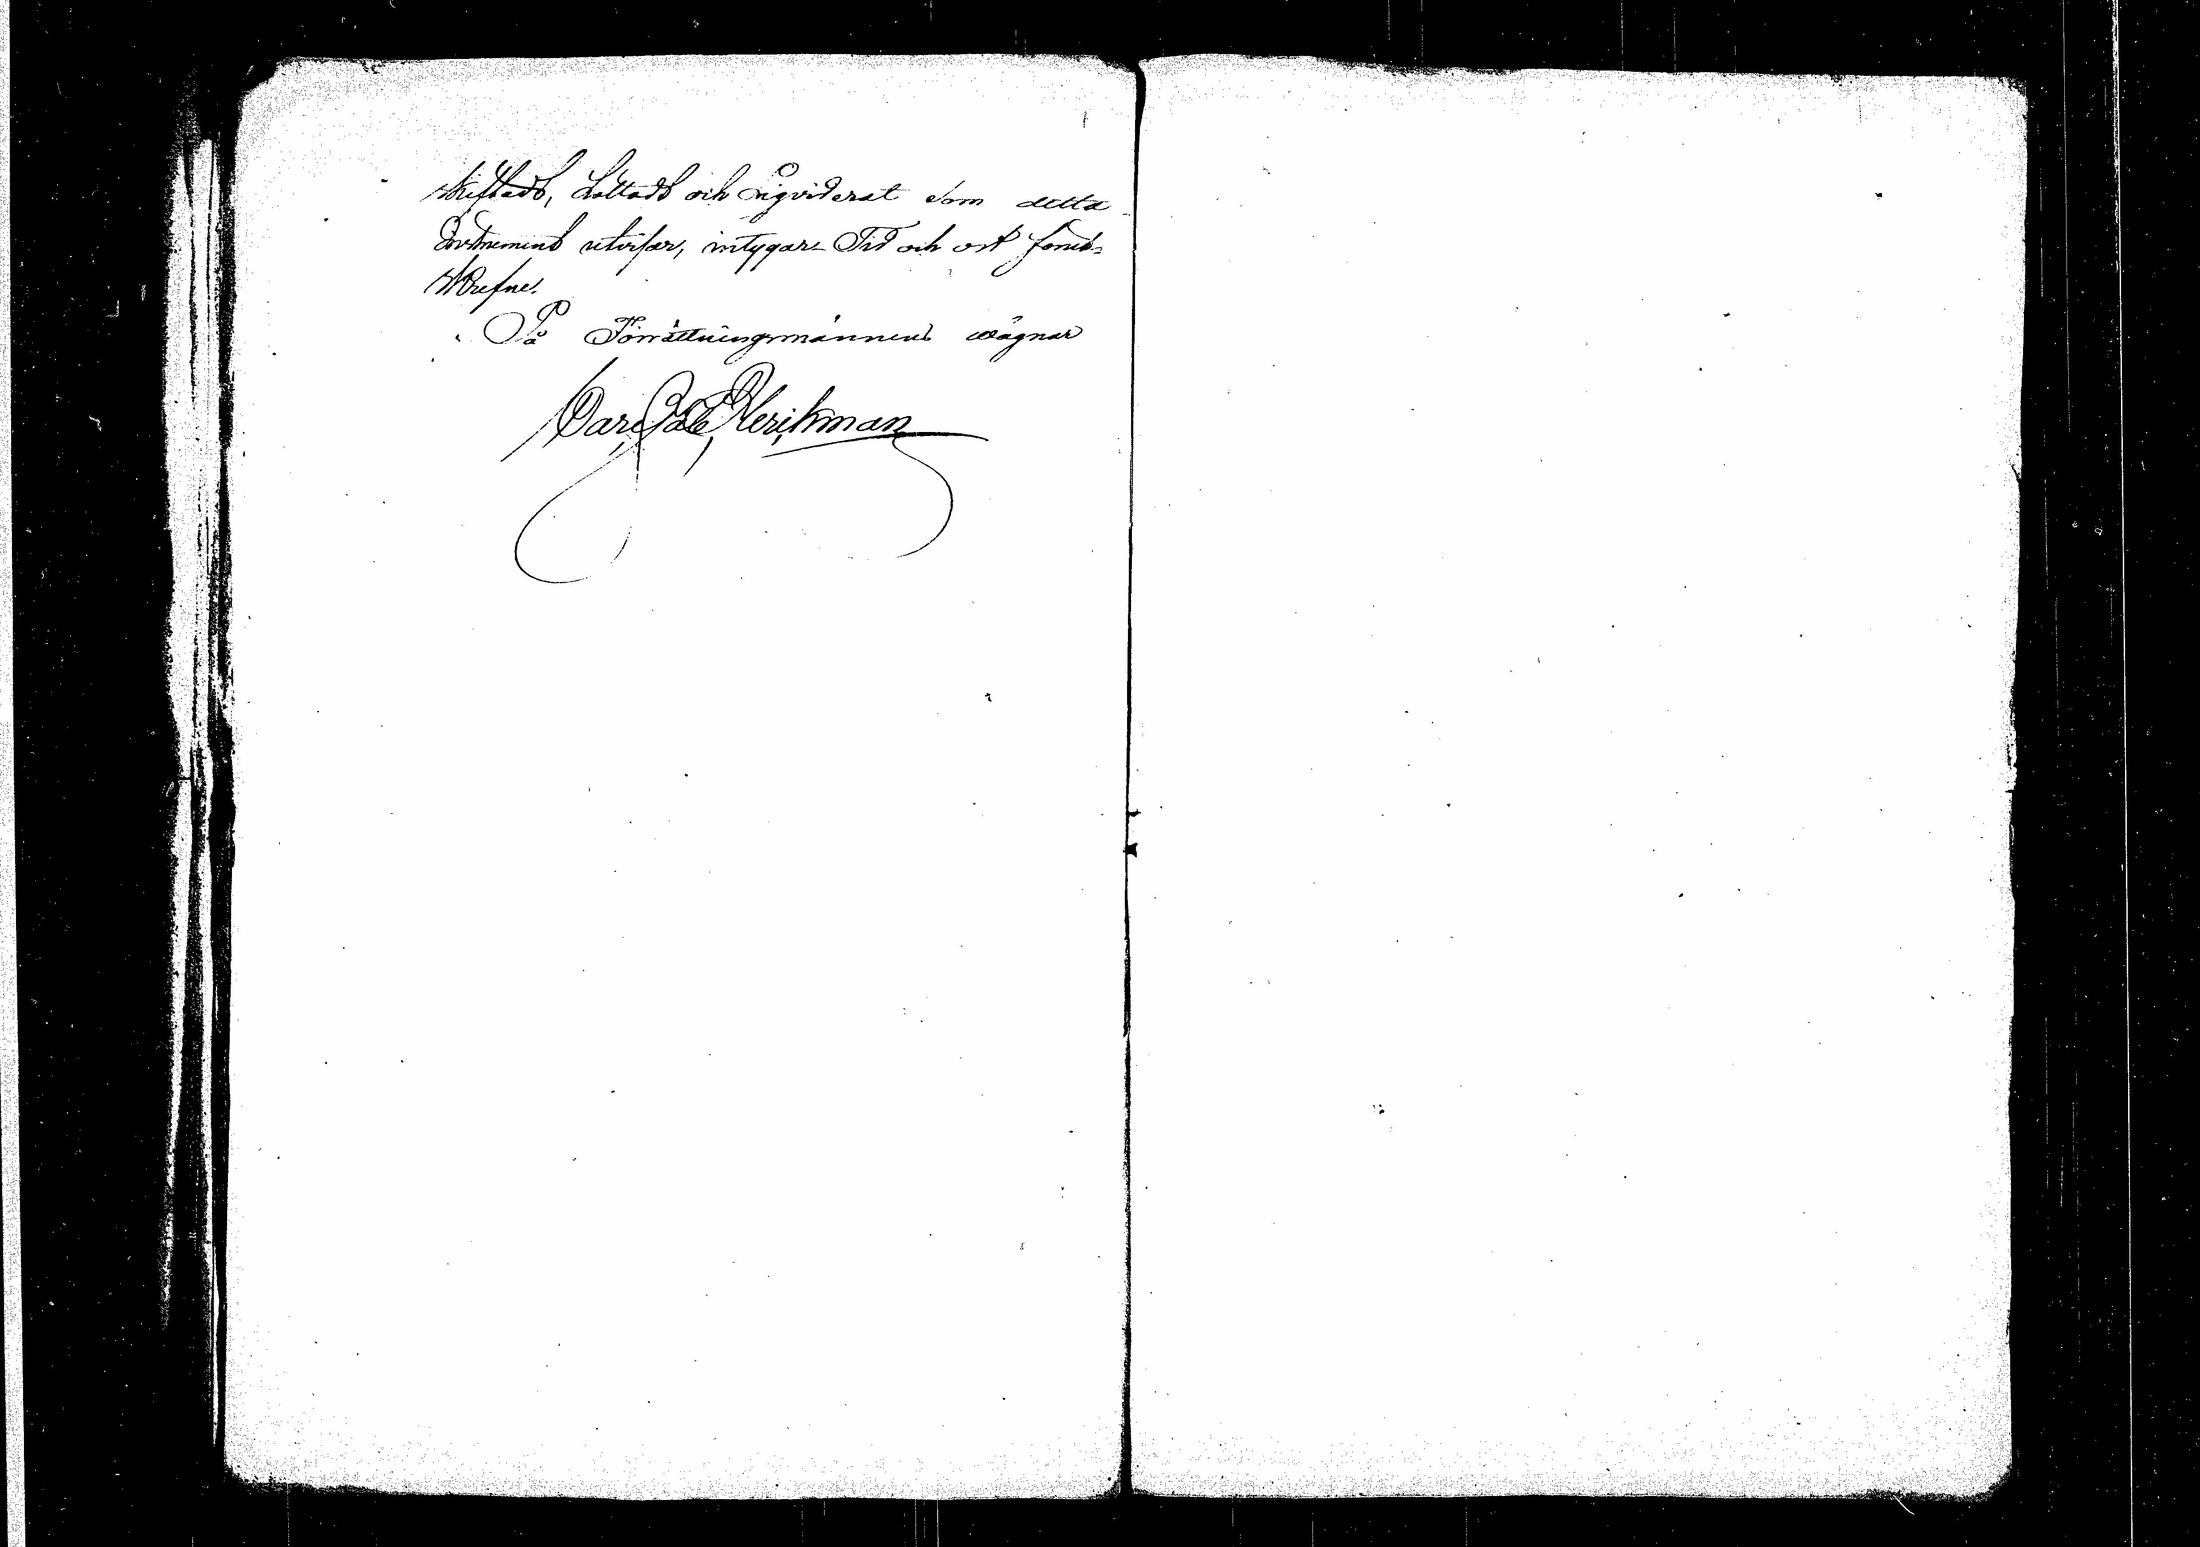 skiftads, Lottads och Liqviderat som detta
Instrument utvisar, intygar Tid och ort foruts=
skrefne.
På Förrättningsmännens wägnar
Carl Herikman